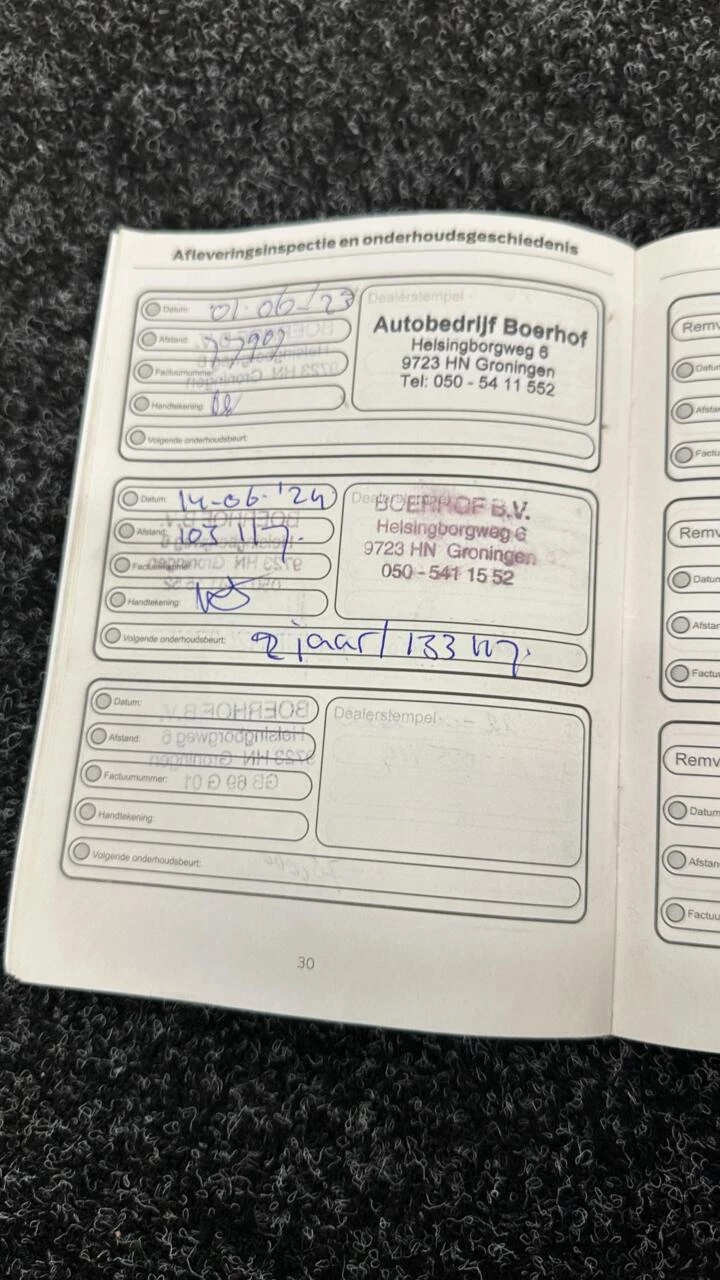 Afleveringsinspectie en onderhoudsgeschiedenis
Datum: 01-06-'23
Afstand:
Factuurnummer:
Handtekening:
Volgende onderhoudsbeurt:
Dealerstempel
Autobedrijf Boerhof
Helsingborgweg 6
9723 HN Groningen
Tel: 050 - 54 11 552
Datum: 14-06-'24
Afstand:
Factuurnummer:
Handtekening:
Dealerstempel
BOERHOF B.V.
Helsingborgweg 6
9723 HN Groningen
050 - 541 15 52
Volgende onderhoudsbeurt: 2 jaar /
Datum:
Afstand:
Factuurnummer:
Handtekening:
Volgende onderhoudsbeurt:
Dealerstempel
30
Remv
Datum
Afstan
Factu
Remv
Datum
Afstar
Factu
Remv
Datum
Afstan
Factuu